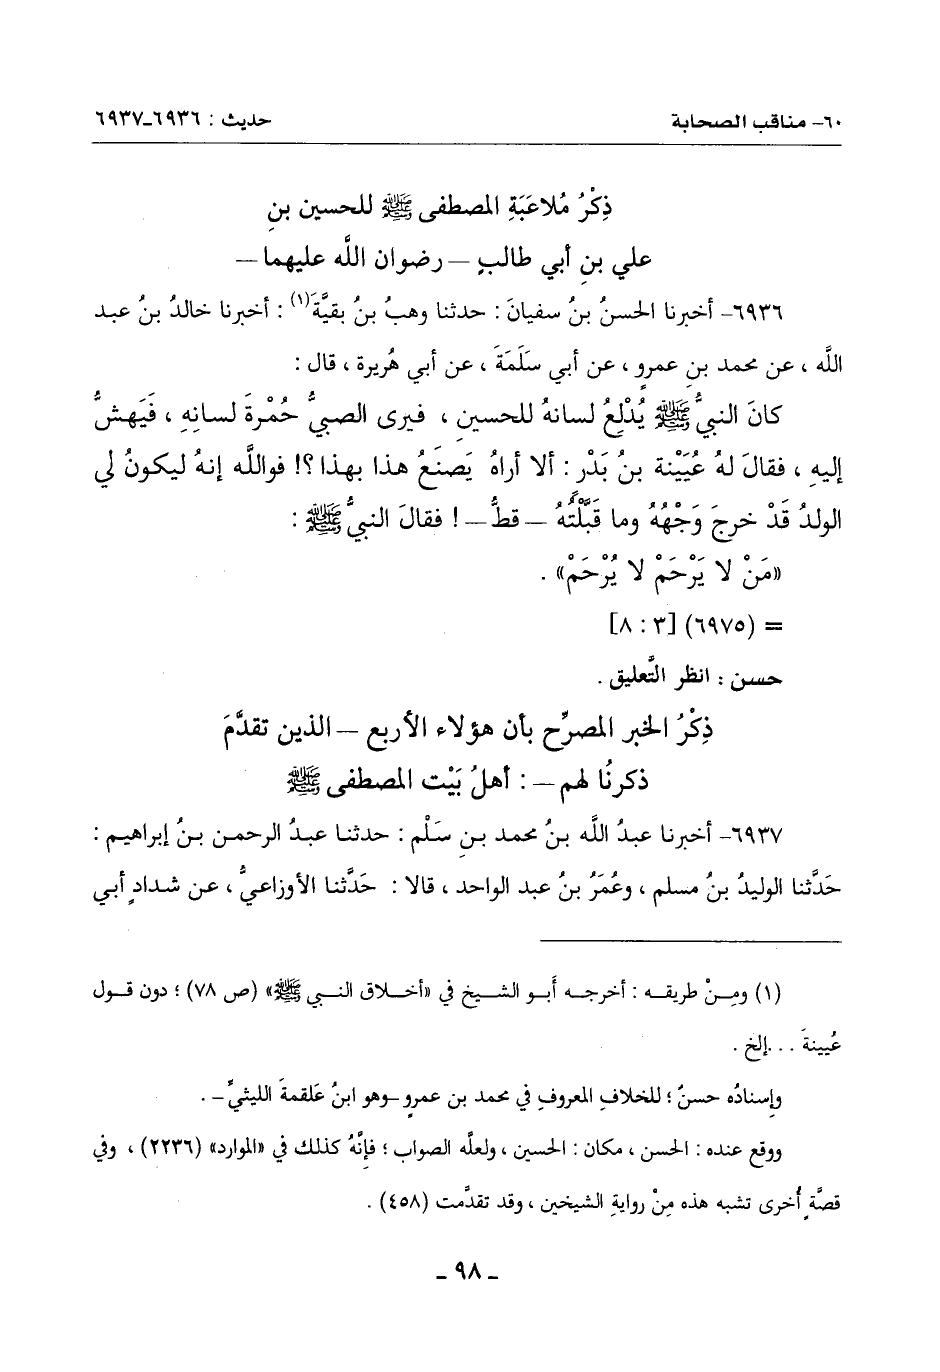 ٦٠- مناقب الصحابة حديث : ٦٩٣٦-٦٩٣٧
ذِكْرُ مُلاعَبَةِ المصطفى ﷺ للحسين بنِ
علي بنِ أبي طالبٍ – رضوان اللَّه عليهما –
٦٩٣٦- أخبرنا الحسنُ بنُ سفيانَ : حدثنا وهبُ بنُ بقيَّةَ(١) : أخبرنا خالدُ بنُ عبد
اللَّه ، عن محمد بنِ عمرٍو ، عن أبي سَلَمَةَ ، عن أبي هُريرة ، قال :
كانَ النبيُّ ﷺ يُدْلِعُ لسانهُ للحسينِ ، فيرى الصبيُّ حُمْرةَ لسانِهِ ، فَيَهشُّ
إليهِ ، فقالَ لهُ عُيَيْنة بنُ بَدْر : ألا أراهُ يَصنَعُ هذا بهذا ؟! فواللَّه إنهُ ليكونُ لي
الولدُ قَدْ خرجَ وَجْهُهُ وما قَبَّلْتُهُ – قطُّ – ! فقالَ النبيُّ ﷺ :
«مَنْ لا يَرْحَمْ لا يُرْحَمْ» .
= (٦٩٧٥) [٣ : ٨]
حسن : انظر التَّعليق .
ذِكْرُ الخبر المصرِّح بأن هؤلاء الأربع – الذين تقدَّمَ
ذكرنُا لهم – : أهلُ بَيْت المصطفى ﷺ
٦٩٣٧- أخبرنا عبدُ اللَّه بنُ محمد بنِ سَلْم : حدثنا عبدُ الرحمن بنُ إبراهيم :
حَدَّثنا الوليدُ بنُ مسلم ، وعُمَرُ بنُ عبد الواحد ، قالا : حَدَّثنا الأوزاعيُّ ، عن شدادٍ أبي
(١) ومِنْ طريقه : أخرجه أبو الشيخ في «أخلاق النبي ﷺ» (ص ٧٨) ؛ دون قول
عُيينةَ . . .إلخ .
وإسنادُه حسنٌ ؛ للخلافِ المعروفِ في محمد بن عمرٍو -وهو ابنُ عَلقمةَ الليثيِّ- .
ووقع عنده : الحسن ، مكان : الحسين ، ولعلَّه الصواب ؛ فإنَّهُ كذلك في «الموارد» (٢٢٣٦) ، وفي
قصَّةٍ أُخرى تشبه هذه مِنْ روايةِ الشيخين ، وقد تقدَّمت (٤٥٨) .
- ٩٨ -